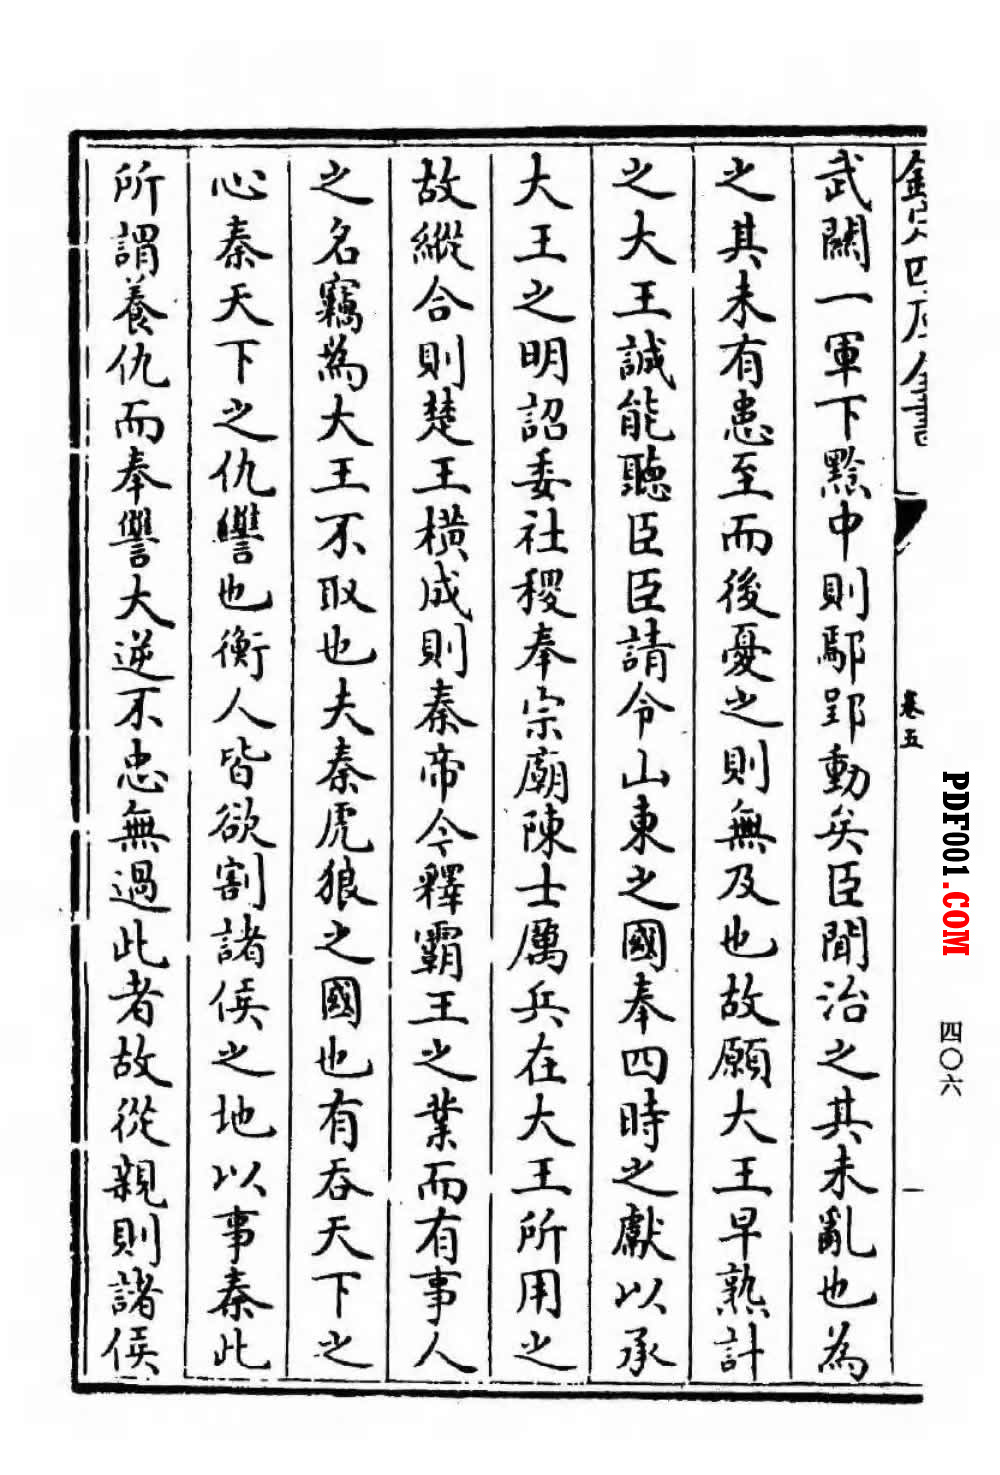 欽定四庫全書
卷五
武關一軍下黔中則鄢郢動矣臣聞治之其未亂也為
之其未有患至而後憂之則無及也故願大王早熟計
之大王誠能聽臣臣請令山東之國奉四時之獻以承
大王之明詔委社稷奉宗廟陳士厲兵在大王所用之
故縱合則楚王橫成則秦帝今釋霸王之業而有事人
之名竊為大王不取也夫秦虎狼之國也有吞天下之
心秦天下之仇讐也衡人皆欲割諸侯之地以事秦此
所謂養仇而奉讐大逆不忠無過此者故從親則諸侯
PDF001.COM
四〇六